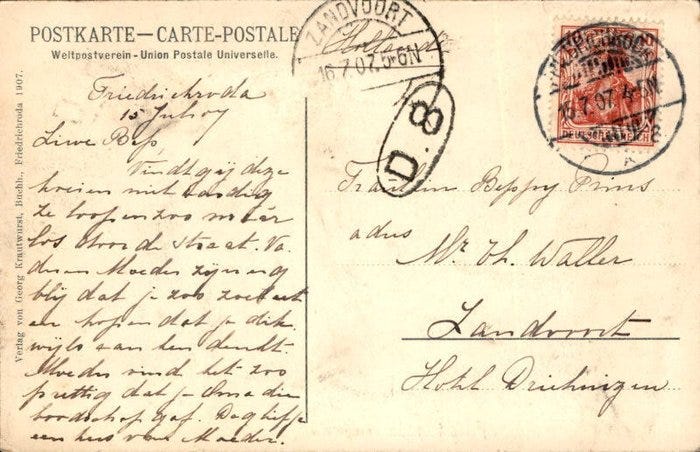 POSTKARTE – CARTE-POSTALE
Weltpostverein - Union Postale Universelle.
Verlag von Georg Krautwurst, Buchh., Friedrichroda 1907.
ZANDVOORT
16.7.07. 5-6N
Holland
D.8
15.7.07. 4-5N
DEUTSCHES REICH
Friedrichroda
15 July 07
Lieve Bep,
Vindt gij deze
koeien niet aardig
ze loopen zoo maar
los door de straat. Va
der en Moeder zijn erg
blij dat je zoo zoet eet
en hopen dat je dik
wijls aan hen denkt.
Moeder vind het zoo
prettig dat je Oma die
boodschap gaf. Dag
een kus van Moeder.
Fräulein Beppy Prins
adres
Mr. Th. Waller
Zandvoort
Hotel Driehuizen